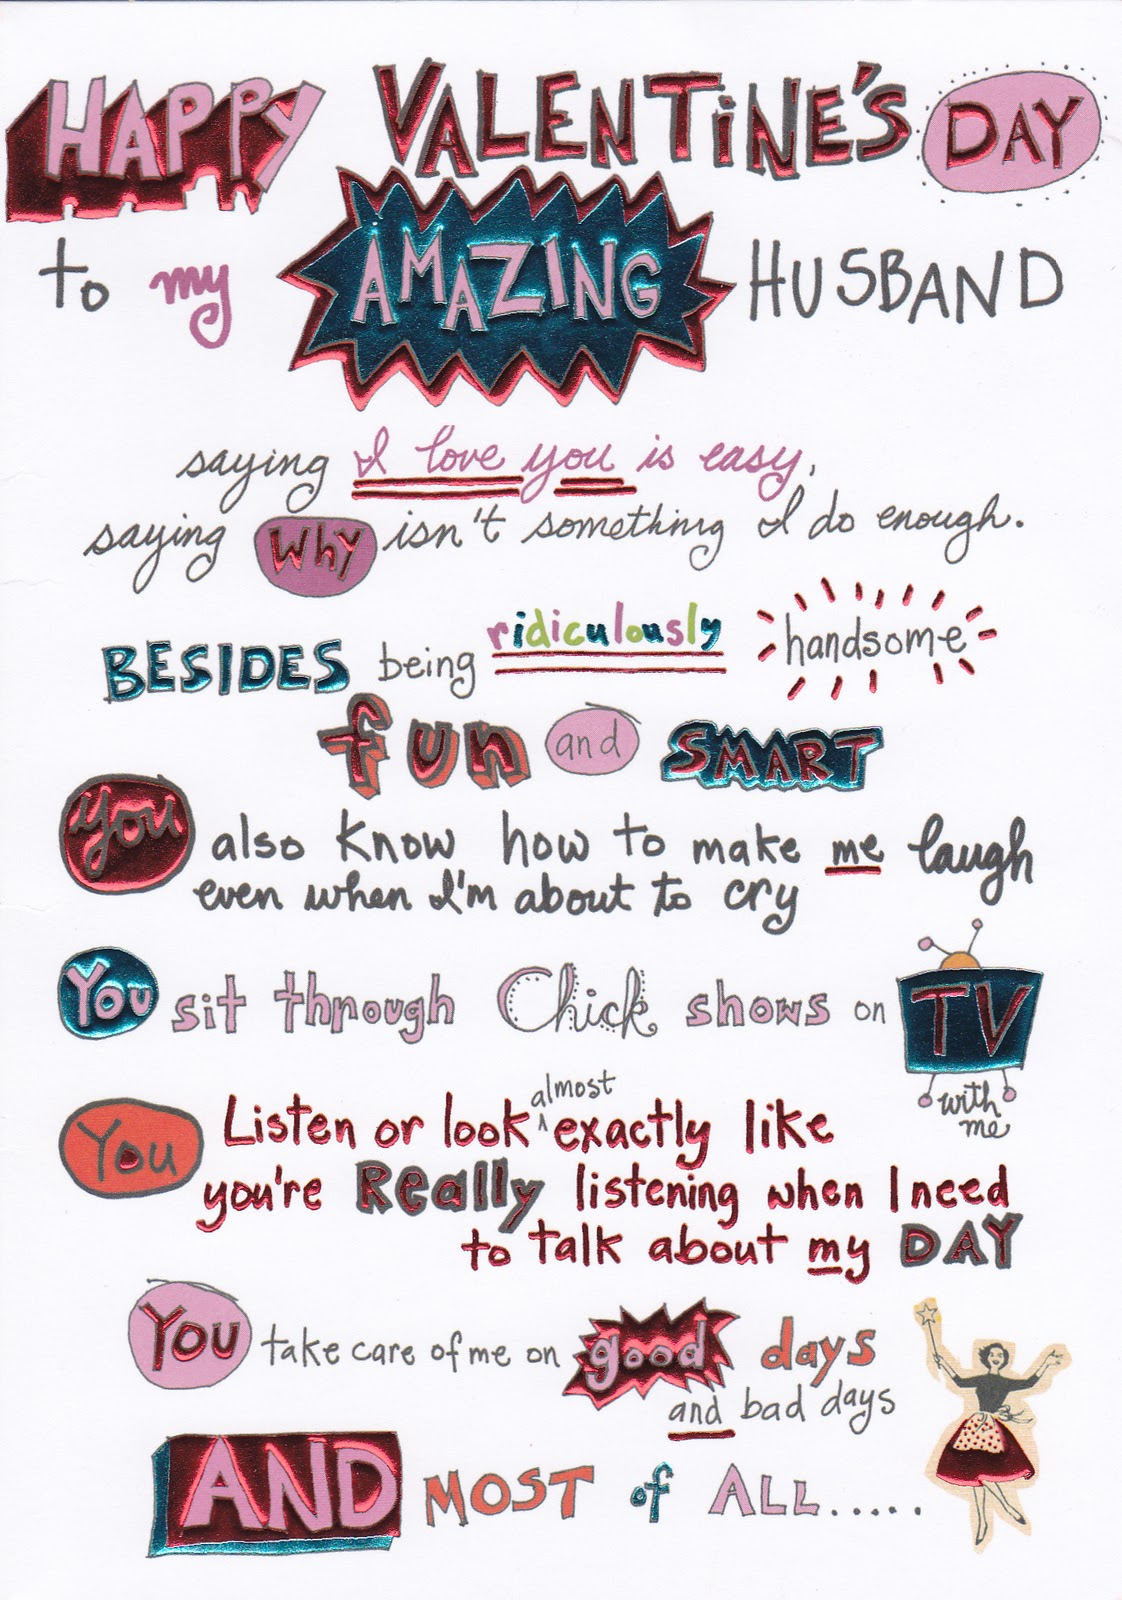 HAPPY VALENTiNE'S DAY
to my AMAZING HUSBAND
saying I love you is easy,
saying Why isn't something I do enough.
BESIDES being ridiculously handsome
fun and SMART
You also know how to make me laugh
even when I'm about to cry
You sit through Chick shows on TV
with
me
almost
You Listen or look ^ exactly like
you're Really listening when I need
to talk about my DAY
You take care of me on good days
and bad days
AND MOST of ALL.....